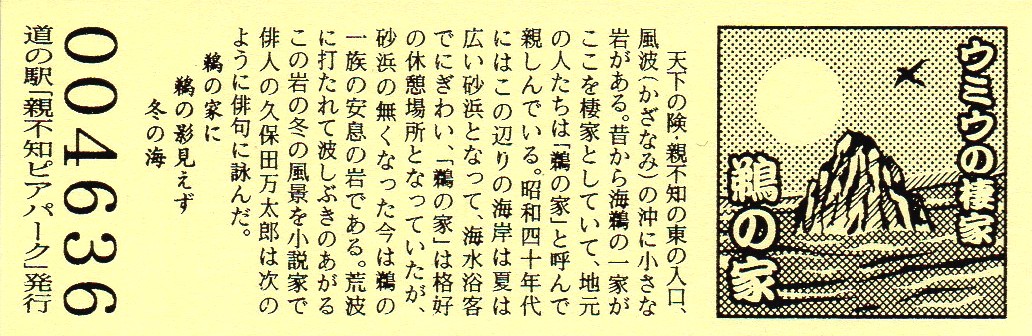 ウミウの棲家
鵜の家
天下の険・親不知の東の入口、
風波(かざなみ)の沖に小さな
岩がある。昔から海鵜の一家が
ここを棲家としていて、地元
の人たちは「鵜の家」と呼んで
親しんでいる。昭和四十年代
にはこの辺りの海岸は夏は
広い砂浜となって、海水浴客
でにぎわい、「鵜の家」は格好
の休憩場所となっていたが、
砂浜の無くなった今は鵜の
一族の安息の岩である。荒波
に打たれて波しぶきのあがる
この岩の冬の風景を小説家で
俳人の久保田万太郎は次の
ように俳句に詠んだ。
鵜の家に
鵜の影見えず
冬の海
004636
道の駅「親不知ピアパーク」発行